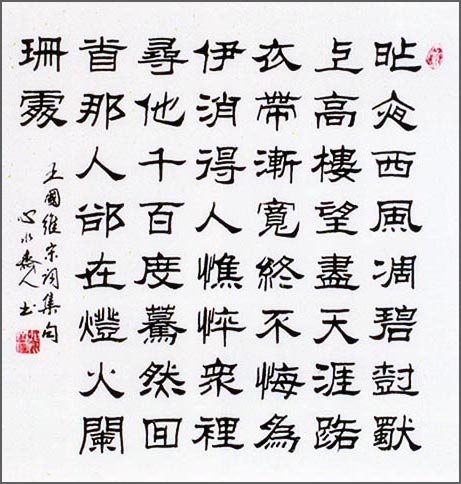 昨夜西風凋碧樹獨
上高樓望盡天涯路
衣帶漸寬終不悔為
伊消得人憔悴衆裡
尋他千百度驀然回
首那人卻在燈火闌
珊處
王國維宋詞集句
心水人书